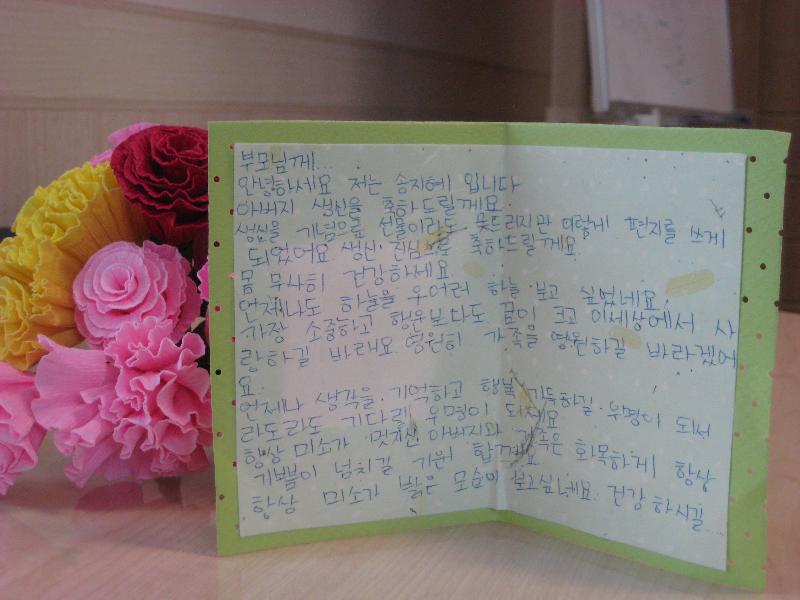 부모님께...
안녕하세요 저는 송지혜 입니다
아버지 생신을 축하드릴께요.
생신을 기념으로 선물이라도 못드리지만 이렇게 편지를 쓰게
되었어요 생신·진심으로 축하드릴께요
몸 무사히 건강하세요
언제나도 하늘을 우어러 하늘·보고 싶었네요.
가장 소중하고 행운보다도 꿈이 크고 이세상에서 사
랑하길 바래요 영원히 가족을 영원하길 바라겠어
요.
언제나 생각을·기억하고 행복 가득하길·우명이 되서
라도라도 기다릴 우명이 되세요
항상 미소가 멋지신 아버지와 가족은 화목하게 항상
기쁨이 넘치길 기원 합께요
항상 미소가 밝은 모습이 보고싶네요 건강 하시길...